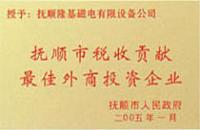 授予：抚顺隆基磁电有限设备公司
抚顺市税收贡献
最佳外商投资企业
抚顺市人民政府
二00五年一月